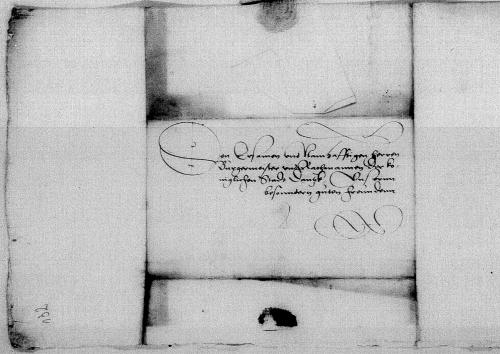 Den Ersamen und Namhafftigen herren
Burgermeister und Rathmannen der ko
niglichen Stadt Dantzk Unsern
besondern guten freunden